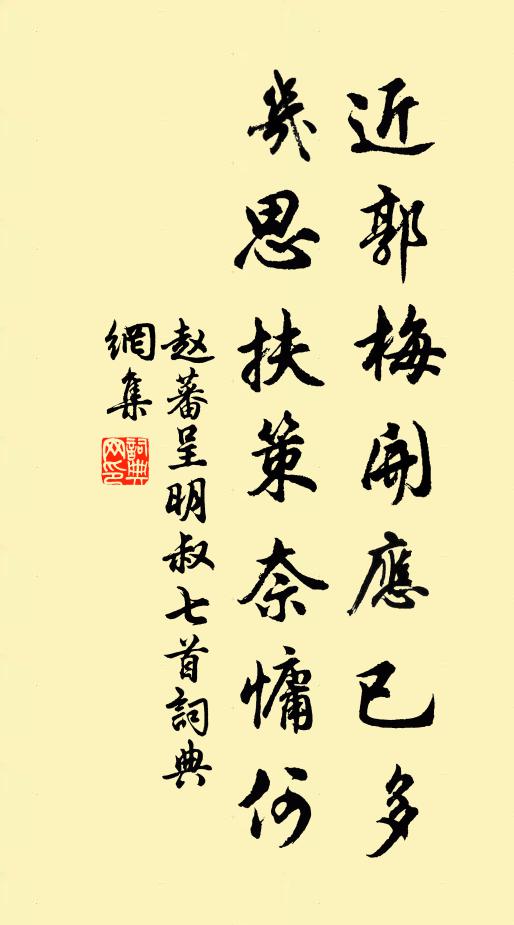 近郭梅開應已多
幾思扶策奈慵何
赵蕃呈明叔七首詞典
網集
詞典網印